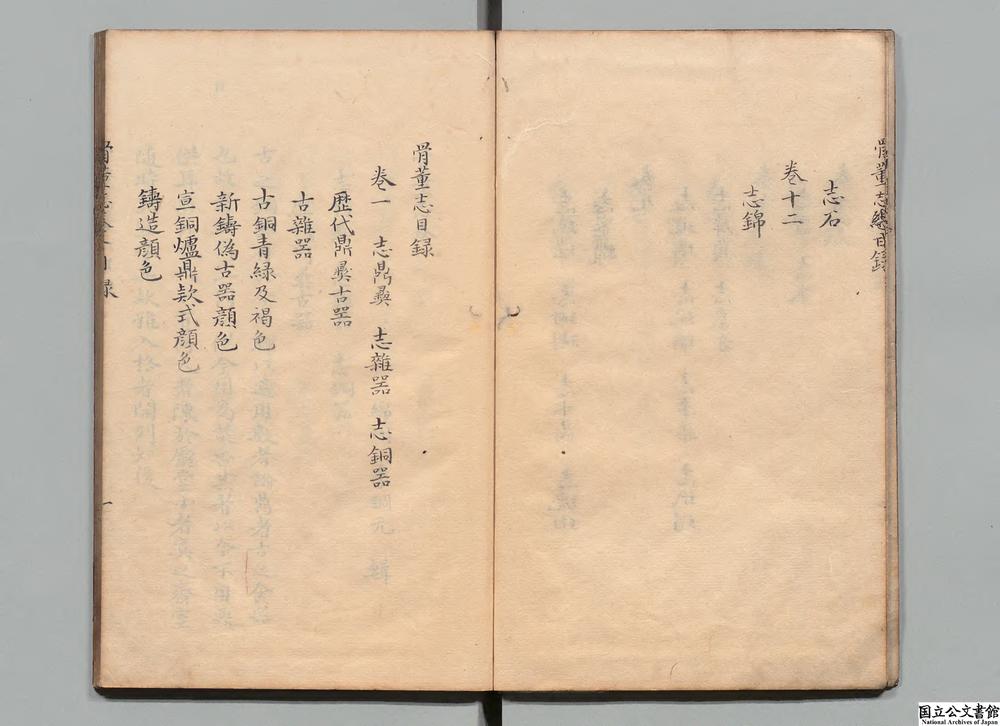 骨董志總目録
志石
卷十二
志錦
骨董志目録
卷一 志鼎彝 志雜器 志銅器
歷代鼎彝古器
古雜器
古銅青緑及褐色
新鑄偽古器顔色
宣銅爐鼎欵式顔色
鑄造顔色
一
国立公文書館
National Archives of Japan